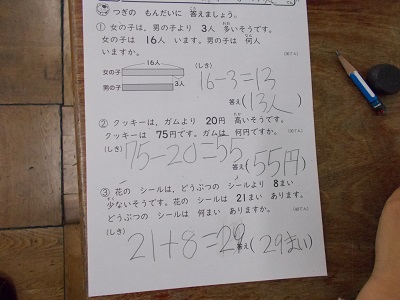 つぎの もんだいに 答えましょう。
① 女の子は、男の子より 3人 多いそうです。
女の子は 16人 います。男の子は 何人
いますか。
16人
女の子
男の子
3人
(しき)
16-3=13
答え(13人)
② クッキーは、ガムより 20円 高いそうです。
クッキーは 75円です。ガムは 何円ですか。
(しき)
75-20=55
答え(55円)
③ 花の シールは、どうぶつの シールより 8まい
少ないそうです。花の シールは 21まい あります。
どうぶつの シールは 何まい ありますか。
(しき)
21+8=29
答え(29まい)